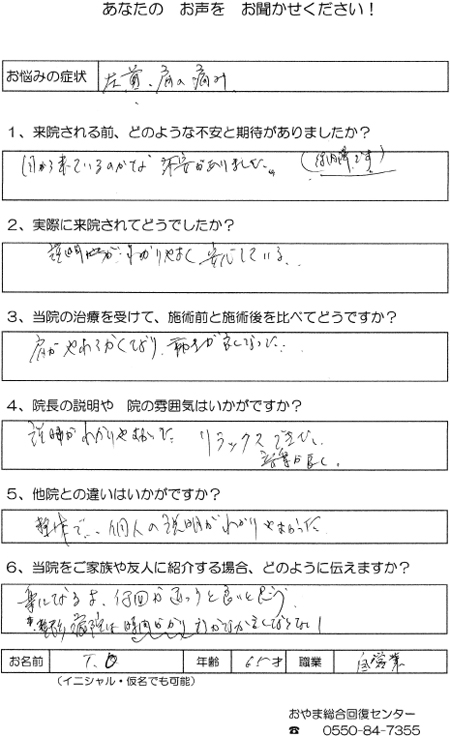 あなたの　お声を　お聞かせください！
お悩みの症状　左首、肩の痛み
1、来院される前、どのような不安と期待がありましたか？
来ているのかな　不安がありました。
2、実際に来院されてどうでしたか？
説明がわかりやすく安心している。
3、当院の治療を受けて、施術前と施術後を比べてどうですか？
肩がやわらかくなり、動きが良くなった。
4、院長の説明や　院の雰囲気はいかがですか？
説明がわかりやすかった　リラックスできた、
音楽が良く。
5、他院との違いはいかがですか？
個人の説明がわかりやすかった
6、当院をご家族や友人に紹介する場合、どのように伝えますか？
楽になるよ、何回か通うと良いと思う
病院は時間かかりなかなか良くならない
お名前　T.O　年齢　65才　職業　自営業
(イニシャル・仮名でも可能)
おやま総合回復センター
☎　0550-84-7355